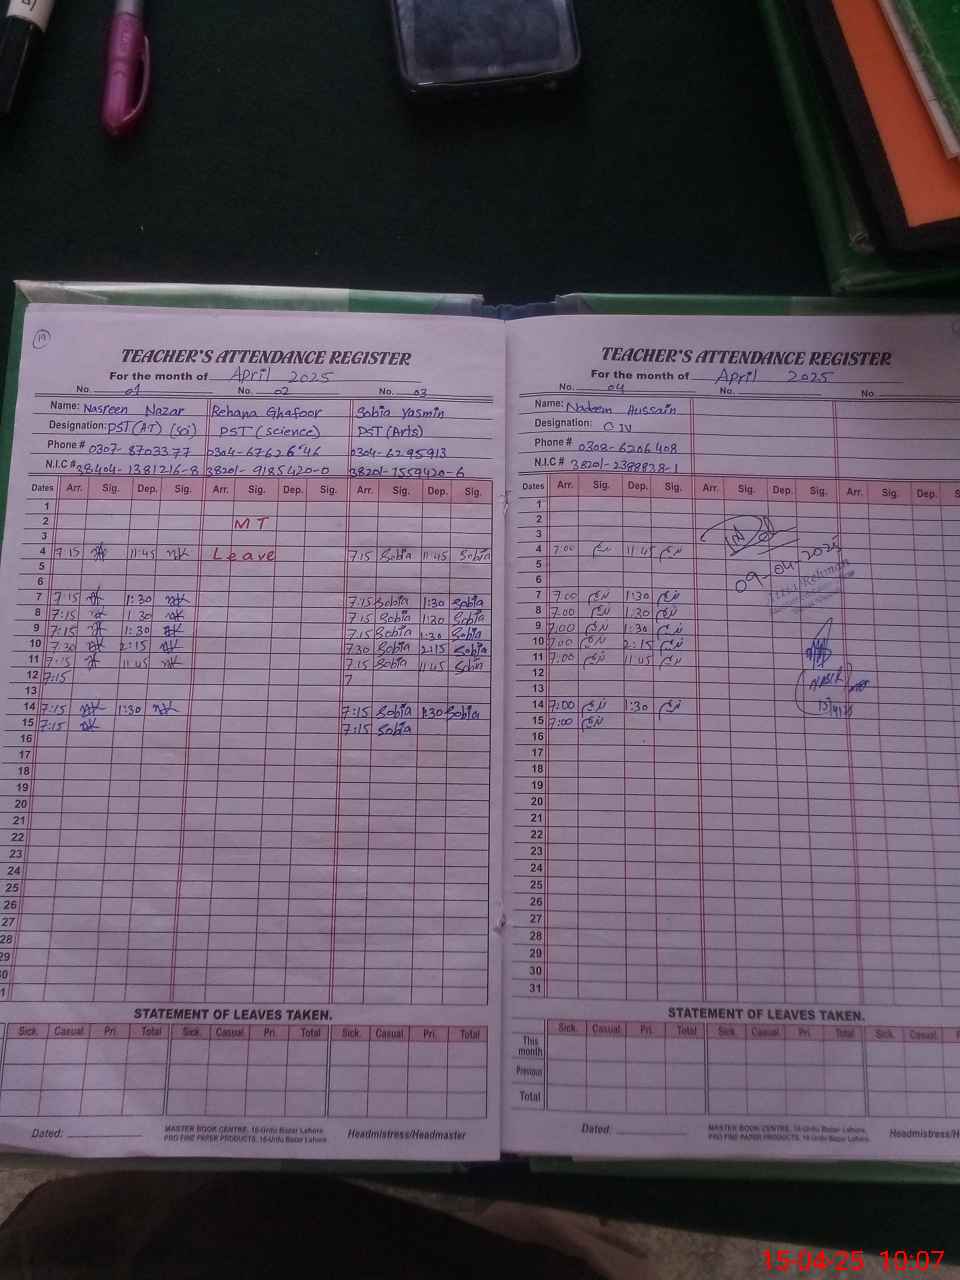 19
TEACHER'S ATTENDANCE REGISTER
For the month of April 2025
No. 01 No. 02 No. 03
Name: Nasreen Nazar Rehana Ghafoor Sobia Yasmin
Designation: PST(AT) (Sci) PST (Science) PST (Arts)
Phone # 0307-8703377 0304-6762646 0304-6295913
N.I.C # 38404-1381216-8 38201-9185420-0 38201-1559420-6
Dates Arr. Sig. Dep. Sig. Arr. Sig. Dep. Sig. Arr. Sig. Dep. Sig.
1
2 MT
3
4 7:15 11:45 Leave 7:15 Sobia 11:45 Sobia
5
6
7 7:15 1:30 7:15 Sobia 1:30 Sobia
8 7:15 1:30 7:15 Sobia 1:30 Sobia
9 7:15 1:30 7:15 Sobia 1:30 Sobia
10 7:30 2:15 7:30 Sobia 2:15 Sobia
11 7:15 11:45 7:15 Sobia 11:45 Sobia
12 7:15 7
13
14 7:15 1:30 7:15 Sobia 1:30 Sobia
15 7:15 7:15 Sobia
16
17
18
19
20
21
22
23
24
25
26
27
28
29
30
1
STATEMENT OF LEAVES TAKEN.
Sick. Casual Pri. Total Sick. Casual Pri. Total Sick. Casual Pri. Total
Dated: Headmistress/Headmaster
MASTER BOOK CENTRE, 16-Urdu Bazar Lahore.
PRO FINE PAPER PRODUCTS, 16-Urdu Bazar Lahore.
TEACHER'S ATTENDANCE REGISTER
For the month of April 2025
No. 04 No. No.
Name: Nadeem Hussain
Designation: C IV
Phone # 0308-6206408
N.I.C # 38201-2388838-1
Dates Arr. Sig. Dep. Sig. Arr. Sig. Dep. Sig. Arr. Sig. Dep. S
1
2
3
4 7:00 11:45
5
6 09-04-2025
7 7:00 1:30
8 7:00 1:30
9 7:00 1:30
10 7:00 2:15
11 7:00 11:45
12
13
14 7:00 1:30
15 7:00
16
17
18
19
20
21
22
23
24
25
26
27
28
29
30
31
STATEMENT OF LEAVES TAKEN.
Sick. Casual Pri. Total Sick. Casual Pri. Total Sick. Casual
This month
Previous
Total
Dated: Headmistress/H
MASTER BOOK CENTRE, 16-Urdu Bazar Lahore.
PRO FINE PAPER PRODUCTS, 16-Urdu Bazar Lahore.
15-04-25 10:07